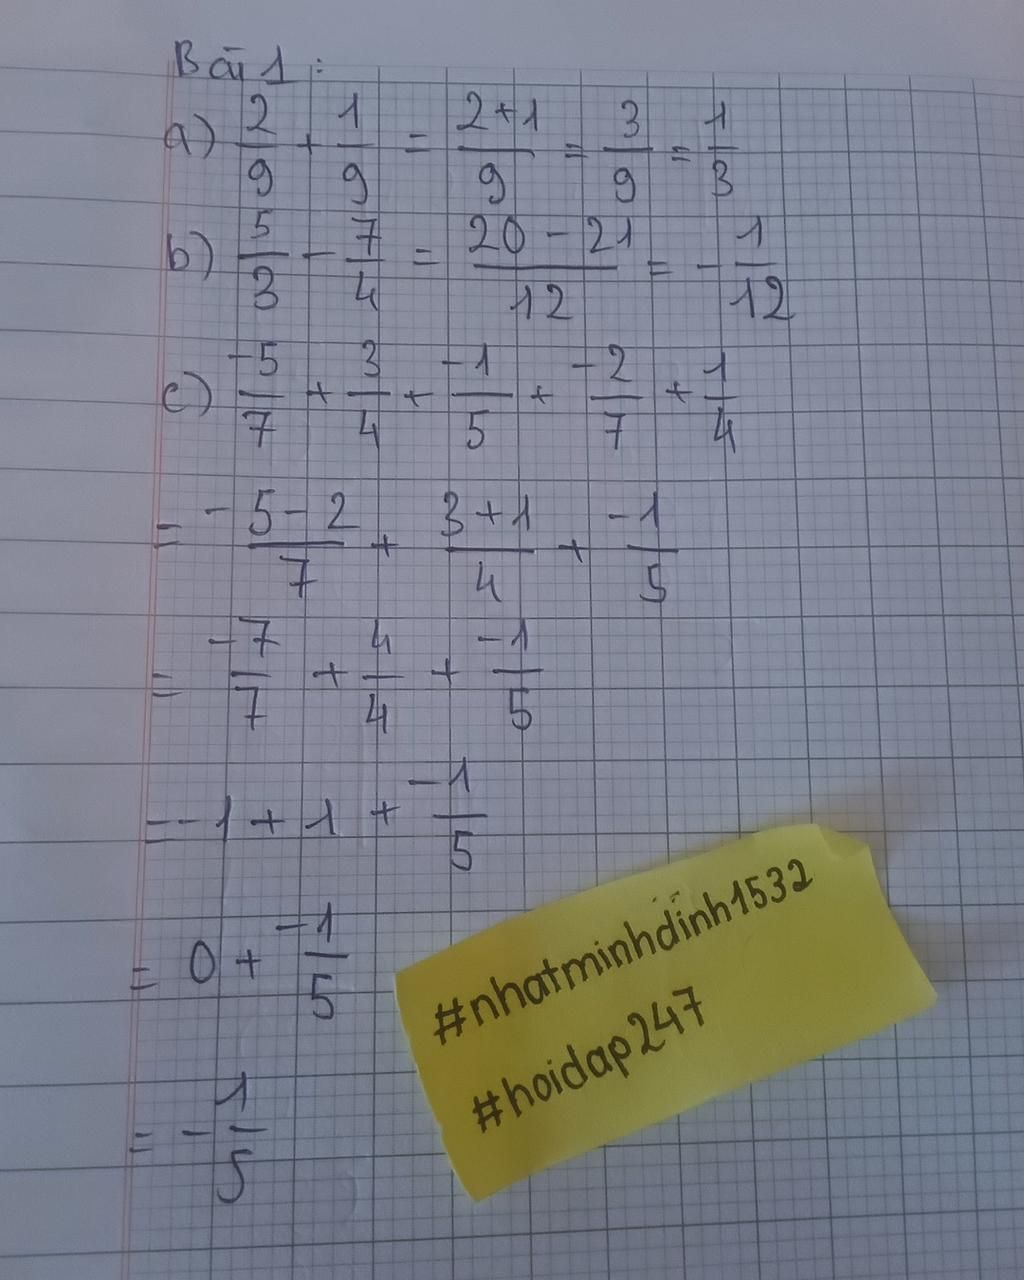 Bài 1:
a) 2/9 + 1/9 = (2+1)/9 = 3/9 = 1/3
b) 5/3 - 7/4 = (20 - 21)/12 = - 1/12
c) -5/7 + 3/4 + -1/5 + -2/7 + 1/4
= (-5-2)/7 + (3+1)/4 + -1/5
= -7/7 + 4/4 + -1/5
= -1 + 1 + -1/5
= 0 + -1/5
= - 1/5
#nhatminhdinh1532
#hoidap247